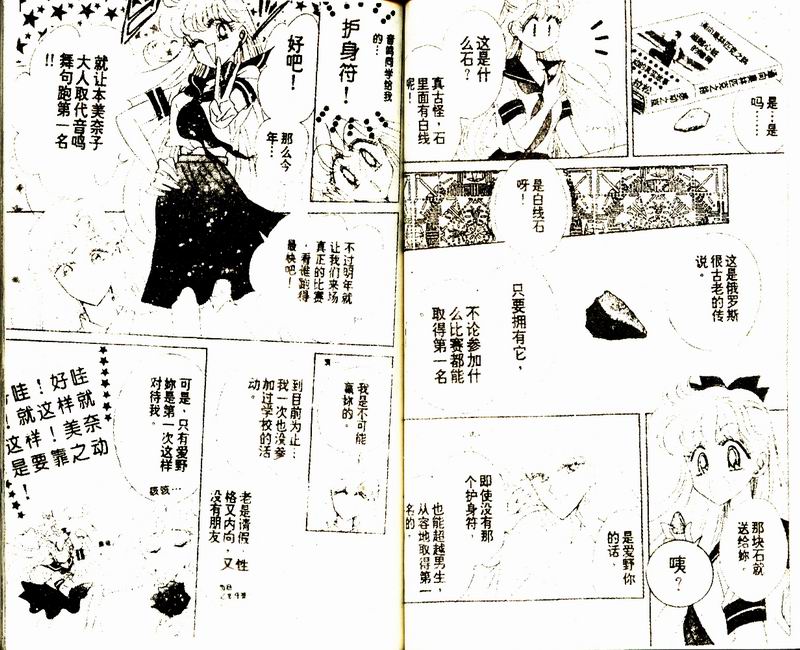 是…是
吗…
这是什
么石？
真古怪，石
里面有白线
呢！
是白线石
呀！
这是俄罗斯
很古老的传
说。
只要拥有它，
不论参加什
么比赛都能
取得第一名
那块石就
送给妳。
咦？
是爱野你
的话，
即使没有那
个护身符，
也能超越男生，
从容地取得第一
名的。
音鸣同学给我
的…
护身符！
好吧！
那么今
年…
就让本美奈子
大人取代音鸣
舞句跑第一名
!!
不过明年就
让我们来场
真正的比赛
，看谁跑得
最快吧！
我是不可能
赢妳的。
到目前为止…
我一次也没参
加过学校的活
动。
老是请假，性
格又内向，又
没有朋友
可是，只有爱野
妳是第一次这样
对待我。
咳咳…
哇就
好样美奈
！这！靠动
哇就样要之
！这是